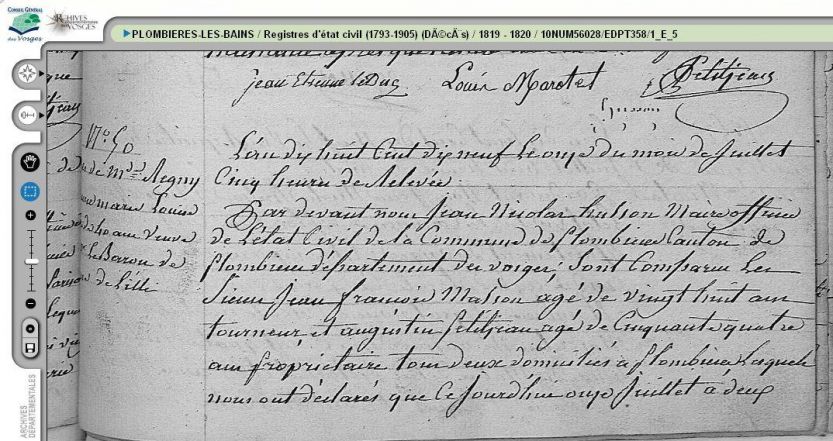 CONSEIL GÉNÉRAL
des Vosges
ARCHIVES
VOSGES
PLOMBIERES-LES-BAINS / Registres d'état civil (1793-1905) (DÃ©cÃ¨s) / 1819 - 1820 / 10NUM56028/EDPT358/1_E_5
jean Etienne leDuc Louis Marotel Petitjean
husson
N.o 50
de Md. Regny
marie Louise
de 40 ans veuve
le Baron de
de Lille
L'an dix huit Cent dix neuf le onze du mois de Juillet
Cinq heures de Relevée.
Par devant nous Jean Nicolas husson Maire officier
de L'état Civil de la Commune de plombieres Canton de
plombieres département des vosges; Sont Comparus les
Sieurs Jean françois Masson agé de vingt huit ans
tourneur et augustin petitjean agé de Cinquante quatre
ans propriétaire tous deux domiciliés a plombieres Lesquels
nous ont déclarés que Ce Jourdhui onze Juillet a deux
ARCHIVES
DÉPARTEMENTALES